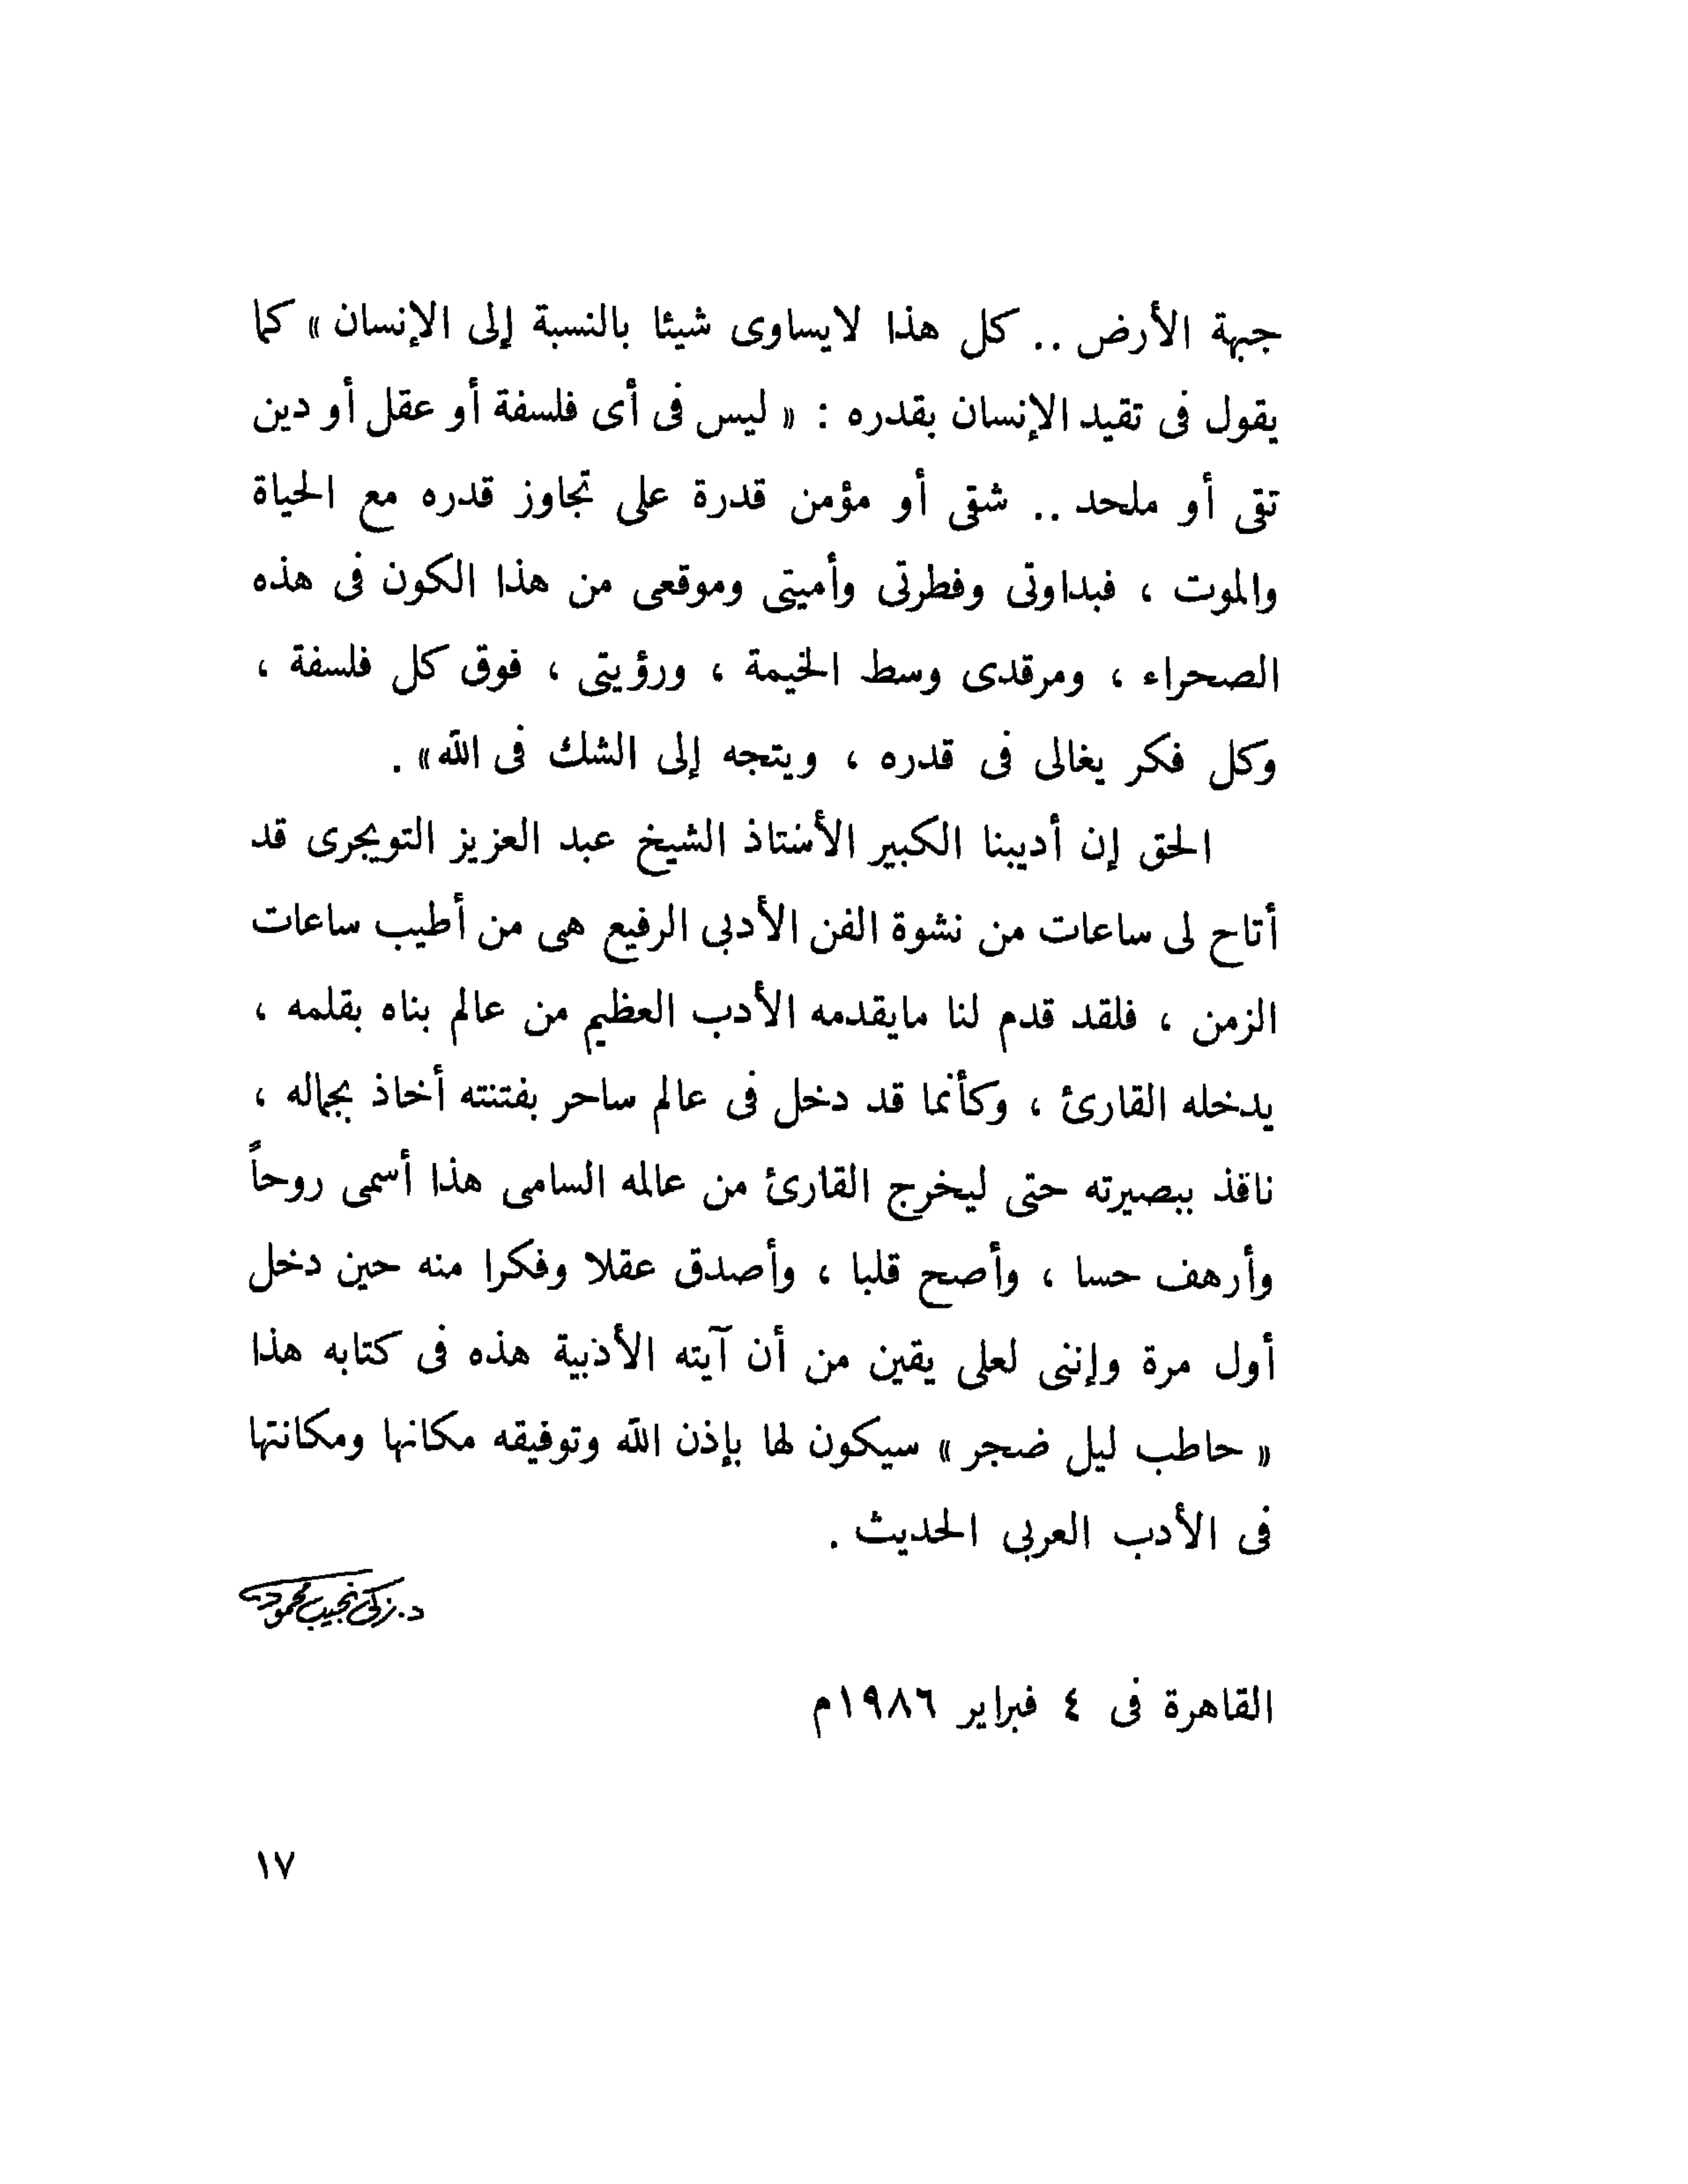 جبهة الأرض .. كل هذا لايساوى شيئا بالنسبة إلى الإنسان » كما
يقول فى تقيد الإنسان بقدره : « ليس فى أى فلسفة أو عقل أو دين
تقى أو ملحد .. شقى أو مؤمن قدرة على تجاوز قدره مع الحياة
والموت ، فبداوتى وفطرتى وأميتى وموقعى من هذا الكون فى هذه
الصحراء ، ومرقدى وسط الخيمة ، ورؤيتى ، فوق كل فلسفة ،
وكل فكر يغالى فى قدره ، ويتجه إلى الشك فى الله» .
الحق إن أديبنا الكبير الأستاذ الشيخ عبد العزيز التويجرى قد
أتاح لى ساعات من نشوة الفن الأدبى الرفيع هى من أطيب ساعات
الزمن ، فلقد قدم لنا مايقدمه الأدب العظيم من عالم بناه بقلمه ،
يدخله القارئ ، وكأنما قد دخل فى عالم ساحر بفتنته أخاذ بجماله ،
نافذ ببصيرته حتى ليخرج القارئ من عالمه السامى هذا أسمى روحاً
وأرهف حسا ، وأصح قلبا ، وأصدق عقلا وفكرا منه حين دخل
أول مرة وإننى لعلى يقين من أن آيته الأذبية هذه فى كتابه هذا
« حاطب ليل ضجر » سيكون لها بإذن الله وتوفيقه مكانها ومكانتها
فى الأدب العربى الحديث .
د. زكى نجيب محمود
القاهرة فى ٤ فبراير ١٩٨٦م
١٧